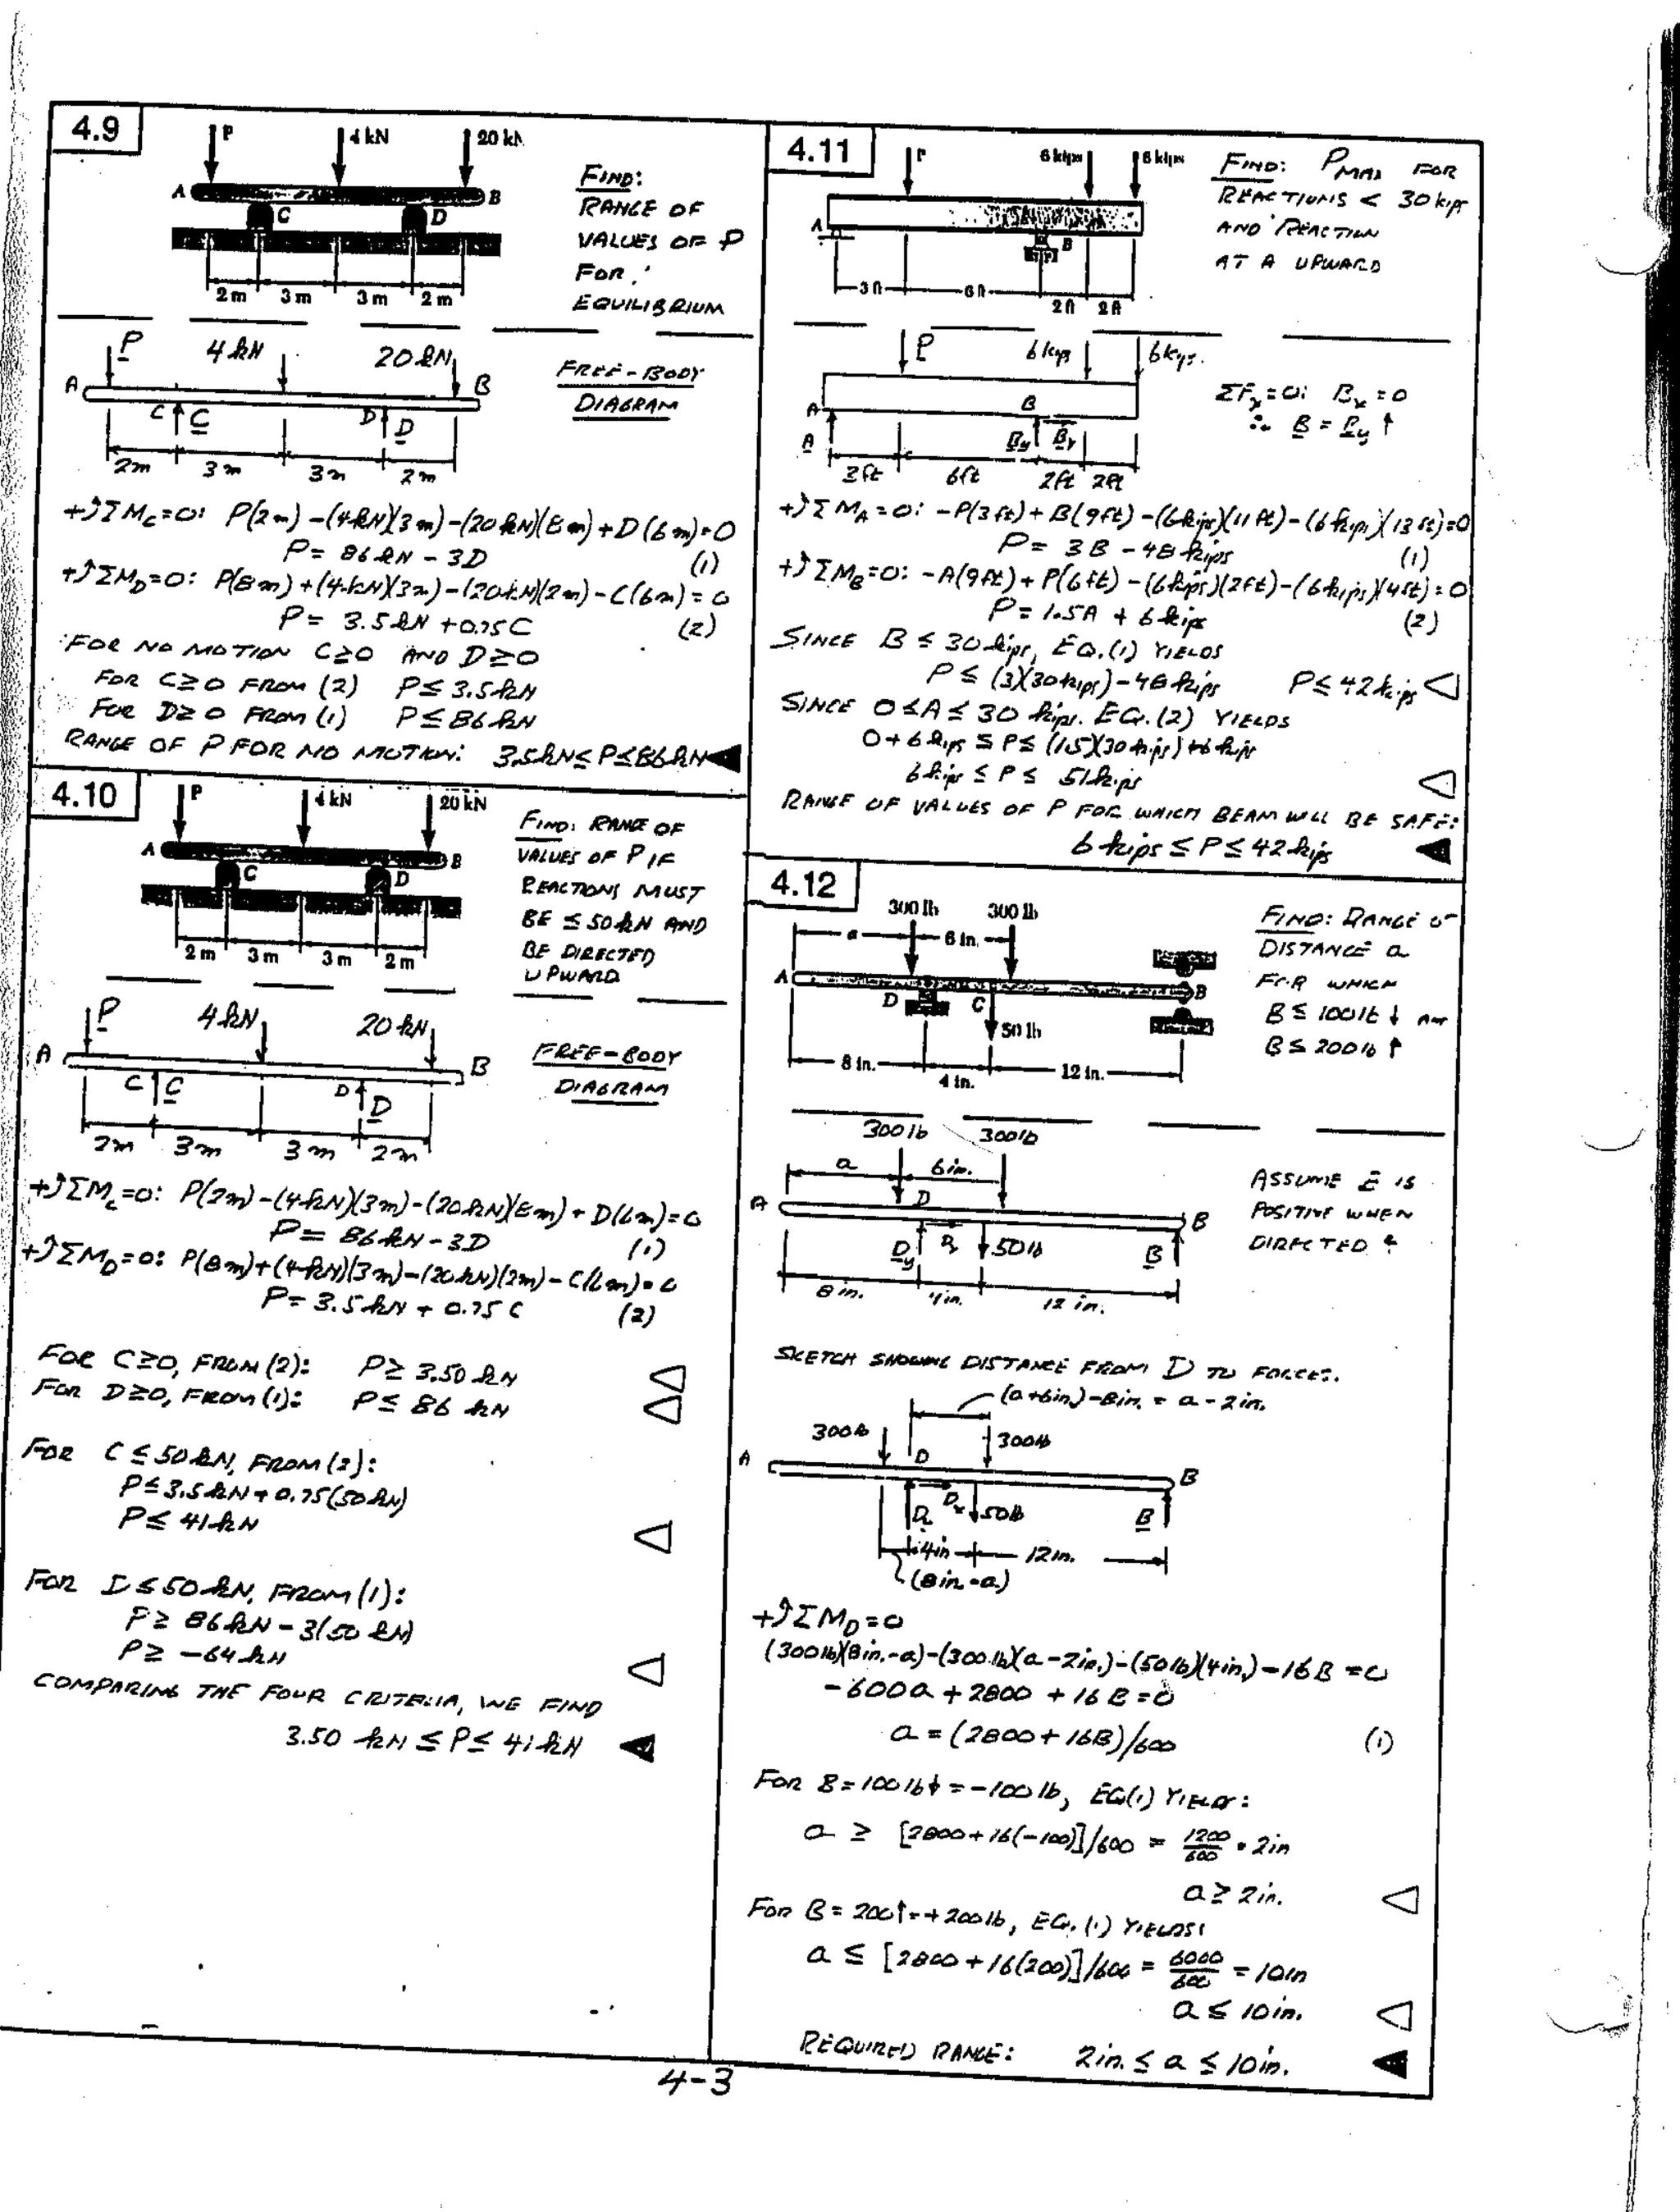 4.9
P
4 kN
20 kN
A
B
C
D
2 m
3 m
3 m
2 m
FIND:
RANGE OF
VALUES OF P
FOR
EQUILIBRIUM
P
4 kN
20 kN
A
B
C
C
D
D
2m
3m
3m
2m
FREE-BODY
DIAGRAM
+↺ΣM_C=0: P(2m)-(4kN)(3m)-(20kN)(8m)+D(6m)=0
P= 86kN - 3D (1)
+↺ΣM_D=0: P(8m)+(4kN)(3m)-(20kN)(2m)-C(6m)=0
P= 3.5kN +0.75C (2)
FOR NO MOTION C≥0 AND D≥0
FOR C≥0 FROM (2) P≤3.5kN
FOR D≥0 FROM (1) P≤86kN
RANGE OF P FOR NO MOTION: 3.5kN≤P≤86kN
4.10
P
4 kN
20 kN
A
B
C
D
2 m
3 m
3 m
2 m
FIND: RANGE OF
VALUES OF P IF
REACTIONS MUST
BE ≤ 50kN AND
BE DIRECTED
UPWARD
P
4kN
20kN
A
B
C
C
D
D
2m
3m
3m
2m
FREE-BODY
DIAGRAM
+↺ΣM_C=0: P(2m)-(4kN)(3m)-(20kN)(8m)+D(6m)=0
P= 86kN-3D (1)
+↺ΣM_D=0: P(8m)+(4kN)(3m)-(20kN)(2m)-C(6m)=0
P= 3.5kN + 0.75C (2)
FOR C≥0, FROM (2): P≥ 3.50kN
FOR D≥0, FROM (1): P≤ 86 kN
FOR C≤50kN, FROM (2):
P≤3.5kN+0.75(50kN)
P≤ 41kN
FOR D≤50kN, FROM (1):
P≥ 86kN - 3(50 kN)
P≥ -64kN
COMPARING THE FOUR CRITERIA, WE FIND
3.50 kN ≤ P≤ 41kN
4.11
P
6 kips
6 kips
A
B
3 ft
6 ft
2 ft
2 ft
FIND: P_MAX FOR
REACTIONS < 30 kips
AND REACTION
AT A UPWARD
P
6 kips
6 kips.
A
B
A
By
Bx
3ft
6ft
2ft
2ft
ΣFx=0: Bx=0
∴ B=By ↑
+↺ΣM_A=0: -P(3ft)+B(9ft)-(6kips)(11ft)-(6kips)(13ft)=0
P= 3B - 48kips (1)
+↺ΣM_B=0: -A(9ft)+P(6ft)-(6kips)(2ft)-(6kips)(4ft)=0
P= 1.5A + 6kips (2)
SINCE B≤30kips, EQ.(1) YIELDS
P≤ (3)(30kips)-48kips P≤42kips
SINCE 0≤A≤30 kips. EQ.(2) YIELDS
0+6kips ≤P≤ (1.5)(30kips)+6kips
6kips ≤ P ≤ 51kips
RANGE OF VALUES OF P FOR WHICH BEAM WILL BE SAFE:
6kips ≤P≤42kips
4.12
300 lb
300 lb
a
6 in.
A
B
D
C
50 lb
8 in.
4 in.
12 in.
FIND: RANGE OF
DISTANCE a
FOR WHICH
B≤100lb↓ AND
B≤200lb ↑
300lb
300lb
a
6in.
A
D
B
Dy
50lb
B
8in.
4in.
12 in.
ASSUME B IS
POSITIVE WHEN
DIRECTED ↑
SKETCH SHOWING DISTANCE FROM D TO FORCES.
(a+6in.)-8in. = a-2in.
300lb
300lb
A
D
B
Dx
50lb
B
4in
12in.
(8in.-a)
+↺ΣM_D=0
(300lb)(8in.-a)-(300lb)(a-2in.)-(50lb)(4in.)-16B=0
-600a+2800+16B=0
a=(2800+16B)/600 (1)
FOR B=100lb↓=-100lb, EQ(1) YIELDS:
a ≥ [2800+16(-100)]/600 = 1200/600 = 2in
a≥2in.
FOR B=200↑=+200lb, EQ.(1) YIELDS:
a ≤ [2800+16(200)]/600 = 6000/600 = 10in
a≤10in.
REQUIRED RANGE: 2in. ≤ a ≤ 10in.
4-3